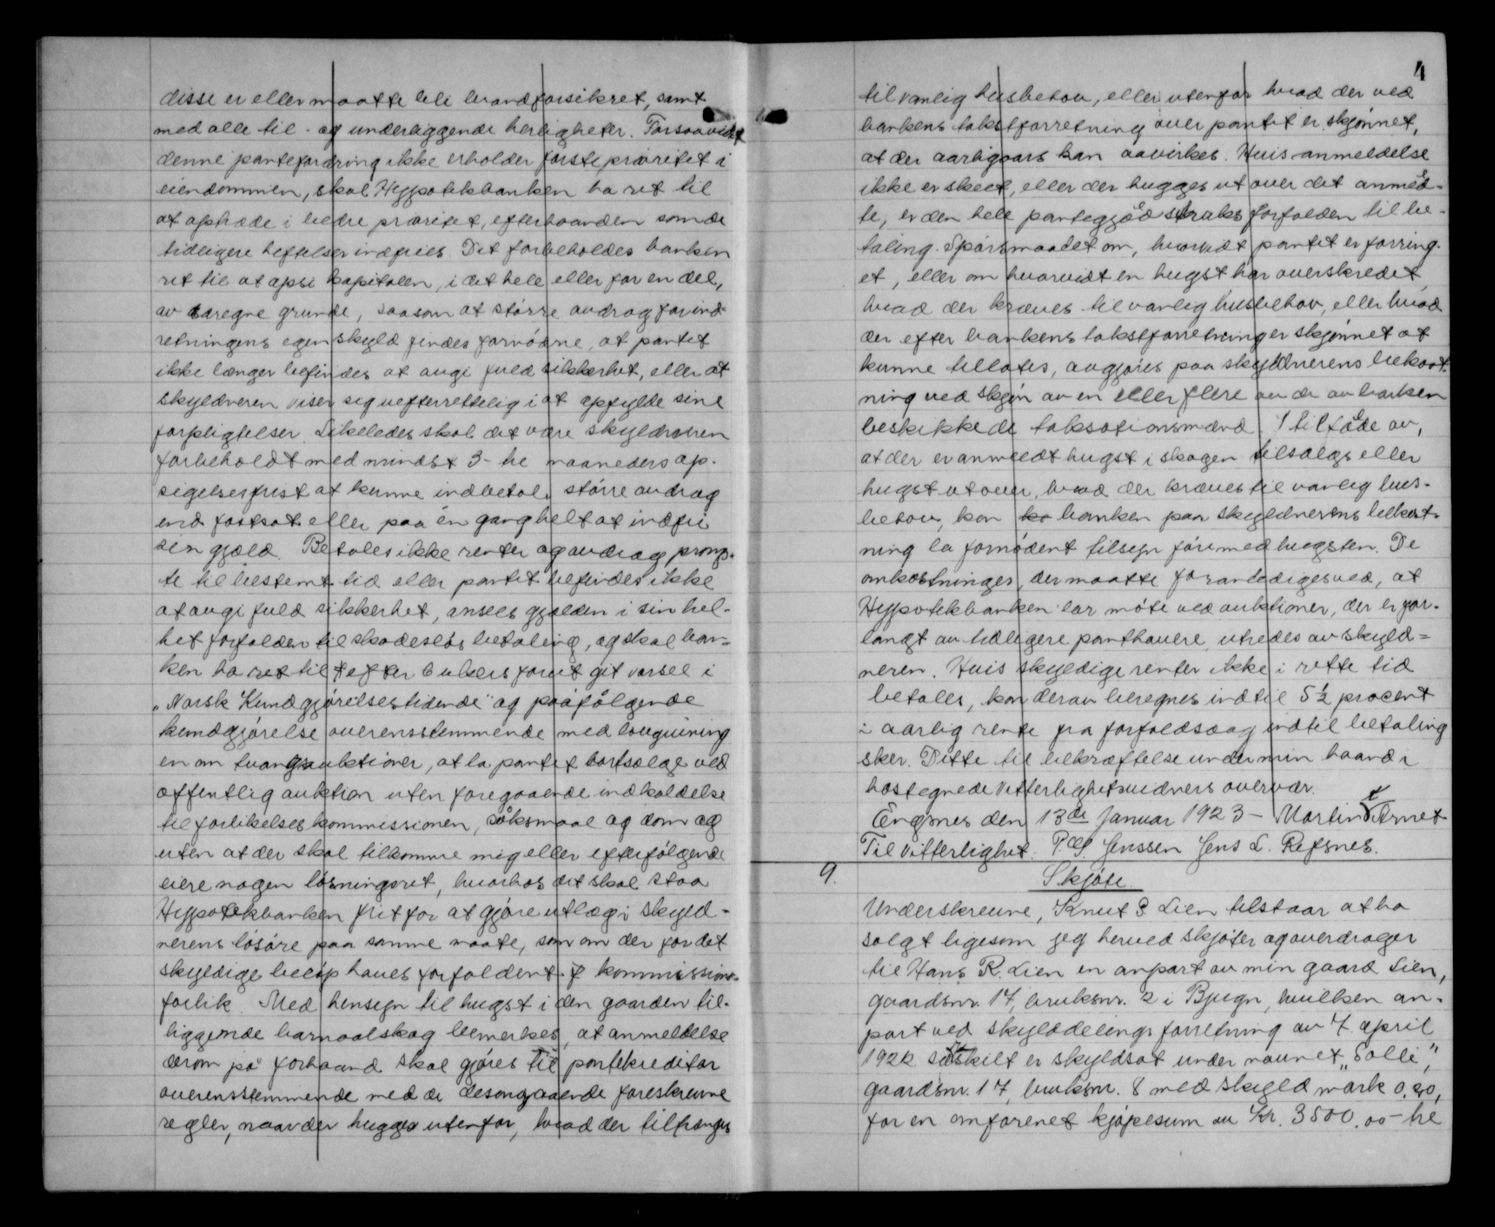 disse er eller maatte bli brandforsikret, samt
med alle til- og underliggende herligheter. Forsaavidt
denne pantefordring ikke erholder förste prioritet i
eiendommen, skal Hypotekbanken ha ret til
at optræde i bedre prioritet, efterhaanden som de
tidligere heftelser indfries. Det forbeholdes banken
ret til at opsi kapitalen, i det hele eller for en del,
av egne grunde, saasom at större avdrag for ind-
retningens egen skyld findes fornödne, at pantet
ikke længer befindes at avgi fuld sikkerhet, eller at
skyldneren viser sig uefterrettelig i at opfylde sine
forpligtelser. Likeledes skal det være skyldneren
forbeholdt med mindst 3- tre maaneders op-
sigelsesfrist at kunne indbetale större avdrag
end fastsat eller paa én gang helt at indfri
sin gjæld. Betales ikke renter og avdrag promp-
te til bestemt tid eller pantet befindes ikke
at avgi fuld sikkerhet, ansees gjælden i sin hel-
het forfalden til skadeslös betaling, og skal ban-
ken ha ret til efter 6 ukers forut git varsel i
"Norsk Kundgjörelsestidende" og paafölgende
kundgjörelse overensstemmende med lovgivning
en om tvangsauktioner, at la pantet bortsælge ved
offentlig auktion uten foregaaende indkaldelse
til forlikelseskommissionen, söksmaal og dom og
uten at der skal tilkomme mig eller efterfölgende
eiere nogen lösningsret, hvorhos det skal staa
Hypotekbanken frit for at gjöre utlæg i skyld-
nerens lösöre paa samme maate, som om der for det
skyldige belöp haves forfaldent kommissions-
forlik. Med hensyn til hugst i den gaarden til-
liggende barnaalskog bemerkes, at anmeldelse
derom på forhaand skal gjöres til pantekreditor
overensstemmende med de desangaaende foreskrevne
regler, naar der hugges utenfor, hvad der tiltrænges
4
til vanlig husbehov, eller utenfor hvad der ved
bankens takstforretning over pantet er skjönnet,
at der aarligaars kan avvirkes. Hvis anmeldelse
ikke er skeet, eller der hugges ut over det anmeld-
te, er den hele pantegjæld straks forfalden til be-
taling. Spörsmaalet om, hvorvidt pantet er forring-
et, eller om hvorvidt en hugst har overskredet
hvad der kræves til vanlig husbehov, eller hvad
der efter bankens takstforretning er skjönnet at
kunne tillates, avgjöres paa skyldnerens bekost-
ning ved skjön av en eller flere av de av banken
beskikkede taksationsmænd. I tilfælde av,
at der er anmeldt hugst i skogen tilsalgs eller
hugst ut over, hvad der kræves til vanlig hus-
behov, kan banken paa skyldnerens bekost-
ning la fornödent tilsyn före med hugsten. De
omkostninger, der maatte foranledigesved, at
Hypotekbanken lar möte ved auktioner, der er for-
langt av tidligere panthavere, utredes av skyld-
neren. Hvis skyldige renter ikke i rette tid
betales, kan derav beregnes indtil 5½ procent
i aarlig rente fra forfaldsdag indtil betaling
sker. Dette til bekræftelse under min haand i
hostegnede vitterlighetsvidners overvær.
Engsnes den 13de Januar 1923 - Martin Arnet
Til vitterlighet. P.O. Jenssen Jens L. Refsnes.
9. Skjöte.
Underskrevne, Knut Lien tilstaar at ha
solgt ligesom jeg herved skjöter og overdrager
til Hans R. Lien en anpart av min gaard Lien,
gaardsnr. 17, bruksnr. 2 i Bjugn, hvilken an-
part ved skylddelingsforretning av 7. april
1922 særskilt er skyldsat under navnet "Solli",
gaardsnr. 17, bruksnr. 8 med skyld mark 0.20,
for en omforenet kjöpesum av Kr. 3500.00 - tre